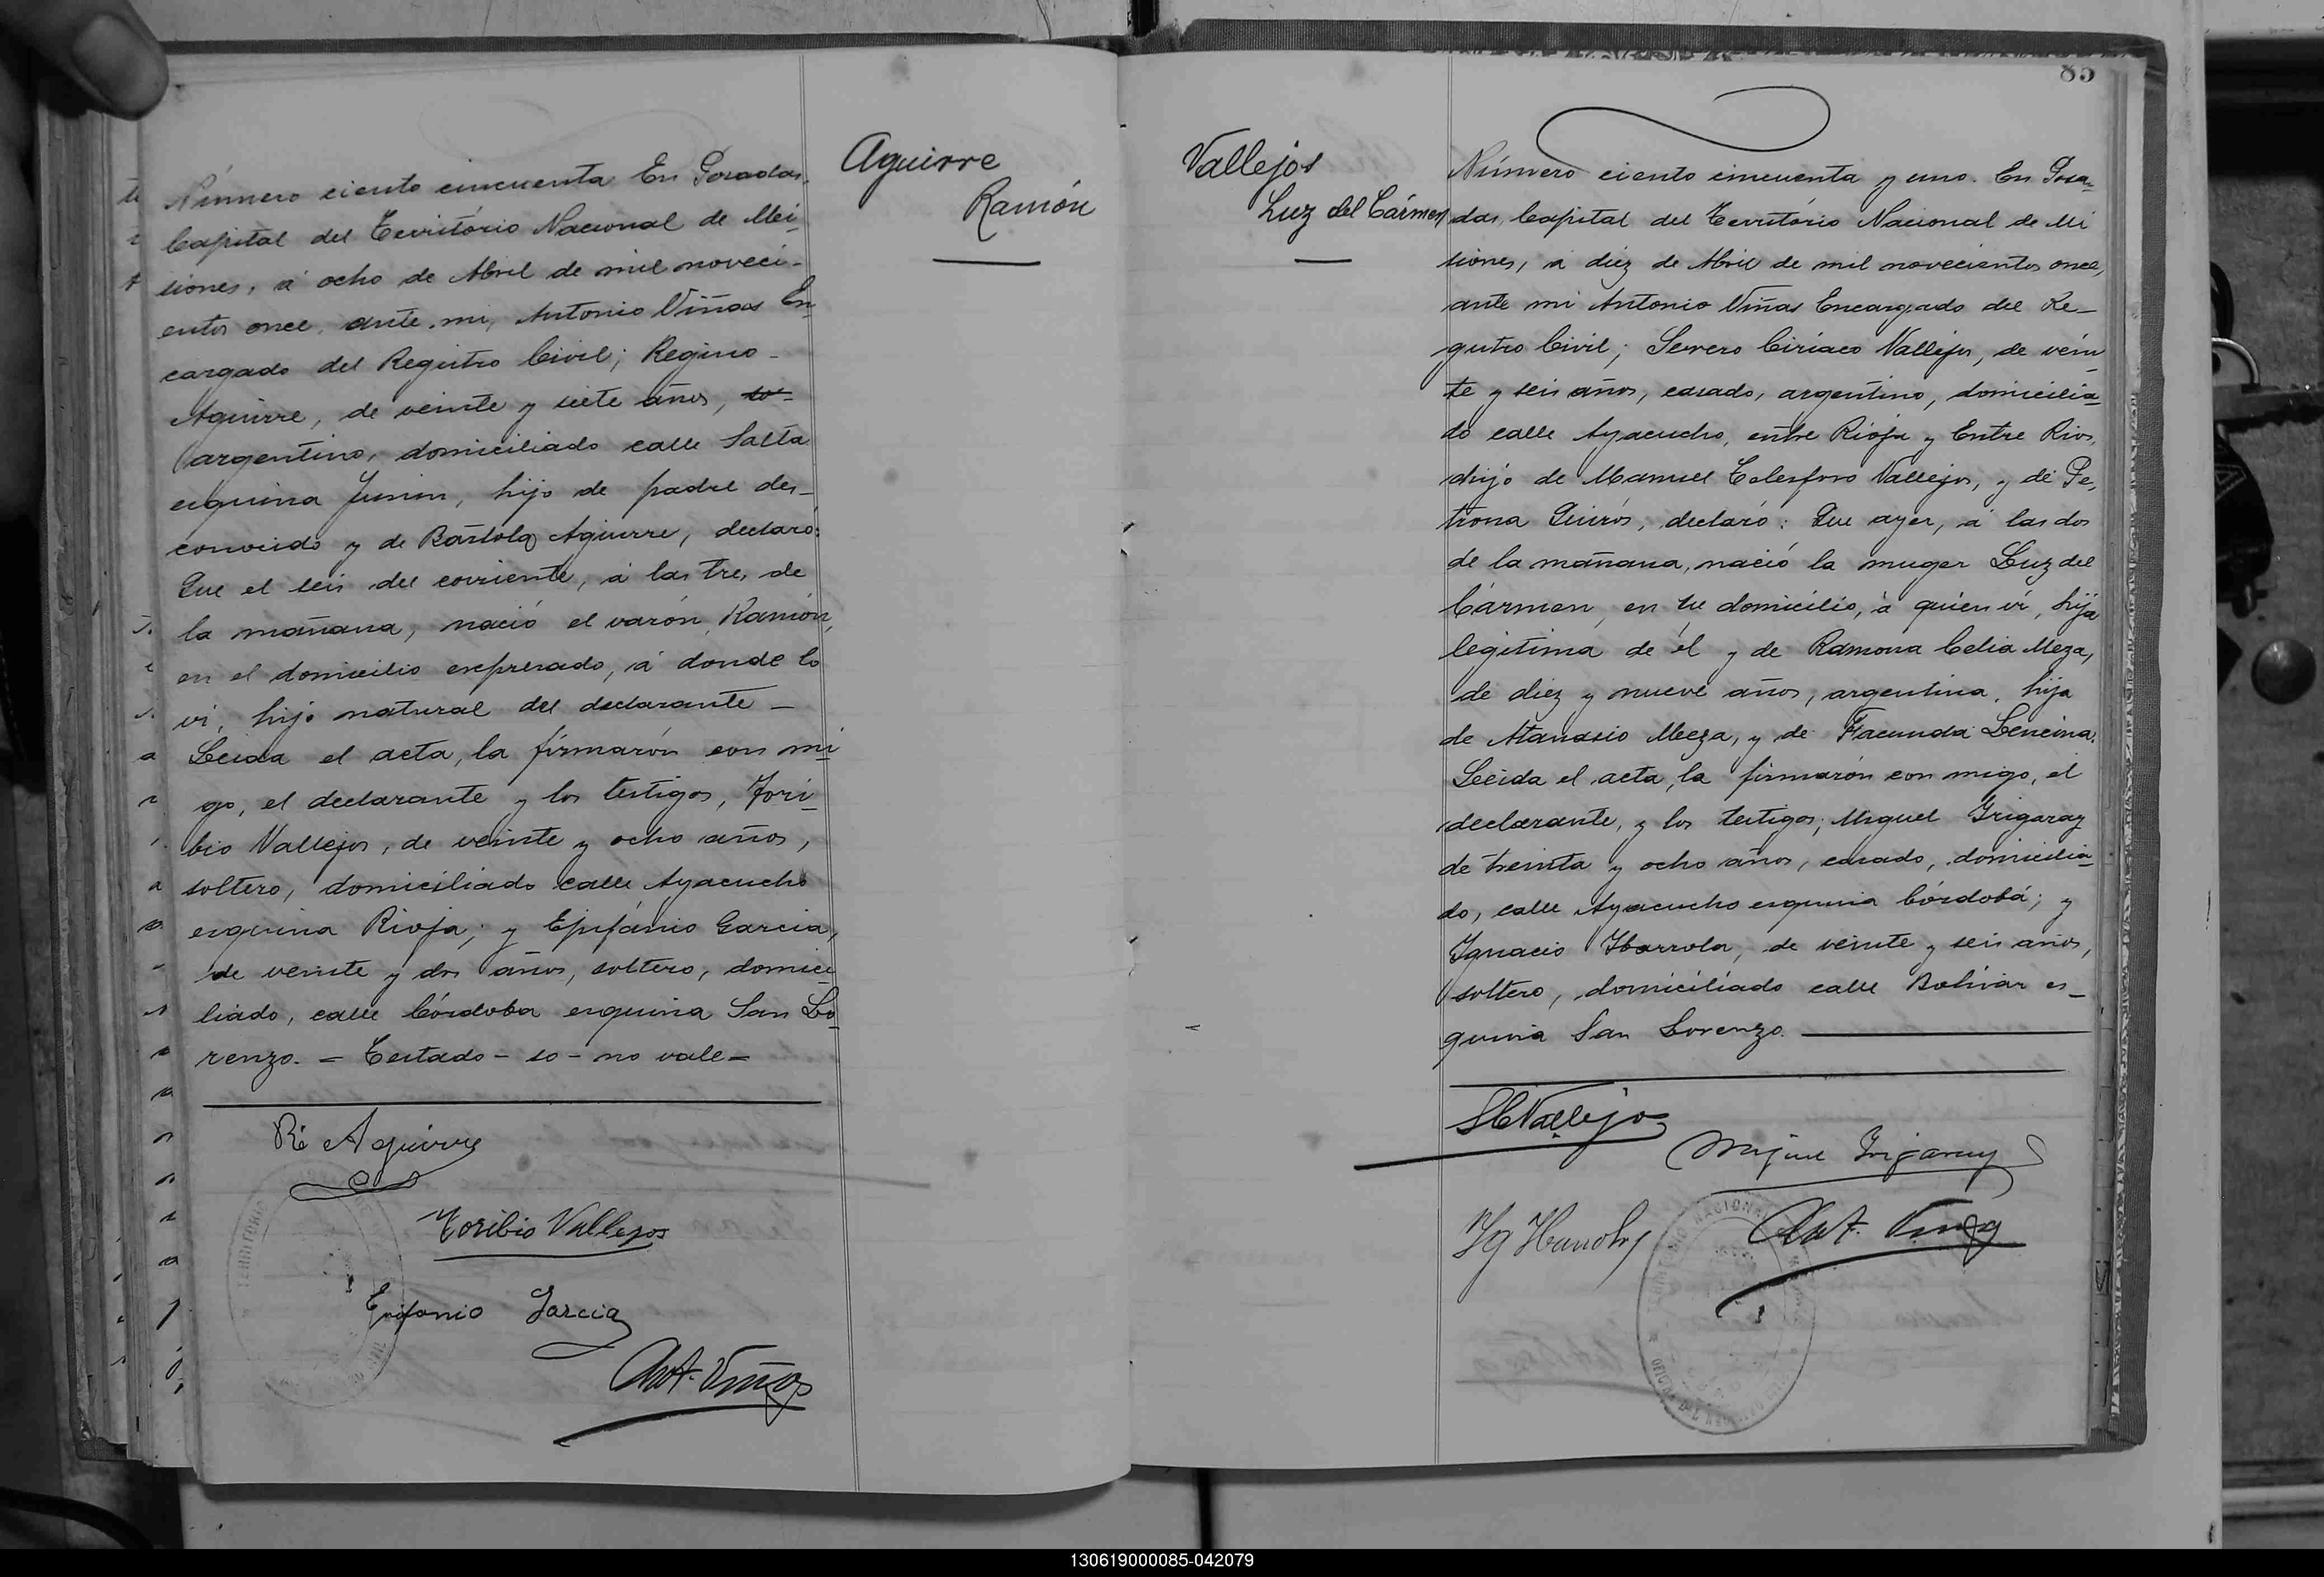 Aguirre
Ramón
Número ciento cincuenta En Posadas,
Capital del Território Nacional de Mi-
siones, á ocho de Abril de mil noveci-
entos once, ante mi, Antonio Viñas En-
cargado del Registro Civil; Regino
Aguirre, de veinte y siete años, so-
argentino, domiciliado calle Salta
esquina Junin, hijo de padre des-
conocido y de Bártola Aguirre, declaró:
Que el seis del corriente, á las tres de
la mañana, nació el varón, Ramón,
en el domicilio expresado, á donde lo
vi, hijo natural del declarante —
Leida el acta, la firmarón con mi-
go, el declarante y los testigos, Tori-
bio Vallejos, de veinte y ocho años,
soltero, domiciliado calle Ayacucho
esquina Rioja; y Epifánio Garcia,
de veinte y dos años, soltero, domici-
liado, calle Córdoba esquina San Lo-
renzo. = Testado - so - no vale =
Ré Aguirre
Toribio Vallejos
Epifanio Garcia
Ant. Viñas
TERRITORIO
85
Vallejos
Luz del Cármen
Número ciento cincuenta y uno. En Posa-
das, Capital del Território Nacional de Mi
siones, á diez de Abril de mil novecientos once,
ante mi Antonio Viñas Encargado del Re-
gistro Civil; Severo Ciriaco Vallejos, de vein-
te y seis años, casado, argentino, domicilia-
do calle Ayacucho, entre Rioja y Entre Rios,
hijo de Manuel Telesforo Vallejos, y de Pe-
trona Quirós, declaró: Que ayer, á las dos
de la mañana, nació la muger Luz del
Cármen, en su domicilio, á quien ví, hija
legitima de él y de Ramona Celia Meza,
de diez y nueve años, argentina, hija
de Atanasio Meza, y de Facunda Lencina.
Leida el acta, la firmarón con migo, el
declarante, y los testigos; Miguel Irigaray
de treinta y ocho años, casado, domicilia-
do, calle Ayacucho esquina Córdobá; y
Ignacio Ibarrola, de veinte y seis años,
soltero, domiciliado calle Bolivar es-
quina San Lorenzo.
S C Vallejos
Miguel Irigaray
Ig Ibarrola
Ant. Viñas
TERRITORIO NACIONAL
130619000085-042079